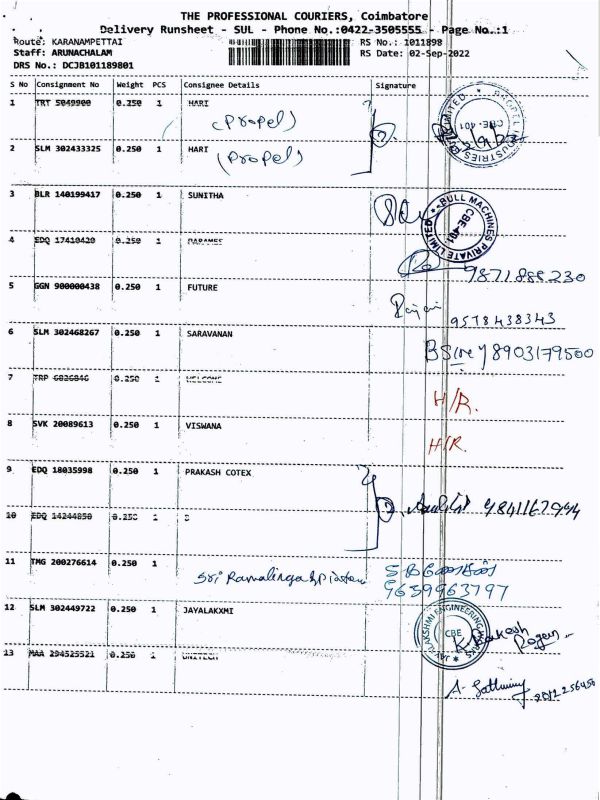 THE PROFESSIONAL COURIERS, Coimbatore
Delivery Runsheet - SUL - Phone No.:0422-3505555 - Page No.:1
Route: KARANAMPETTAI RS No.: 1011898
Staff: ARUNACHALAM RS Date: 02-Sep-2022
DRS No.: DCJB101189801
S No Consignment No Weight PCS Consignee Details Signature
1 TRT 5049900 0.250 1 HARI
(Propel)
2 SLM 302433325 0.250 1 HARI
(Propel)
3 BLR 140199417 0.250 1 SUNITHA
BULL MACHINES PRIVATE LIMITED
CBE-401
4 EDQ 17410420 0.250 1
9871888230
5 GGN 900000438 0.250 1 FUTURE
9578438343
6 SLM 302468267 0.250 1 SARAVANAN
8903179500
7 TRP 6826846 0.250 1 WELCOME
H/R.
8 SVK 20089613 0.250 1 VISWANA
H/R.
9 EDQ 18035998 0.250 1 PRAKASH COTEX
10 EDQ 14244850 0.250 1
9841167994
11 TMG 200276614 0.250 1
Sri Ramalinga
9659963797
12 SLM 302449722 0.250 1 JAYALAKXMI
JAYALAKSHMI ENGINEERING WORKS
CBE
13 MAA 294525521 0.250 1 UNITECH